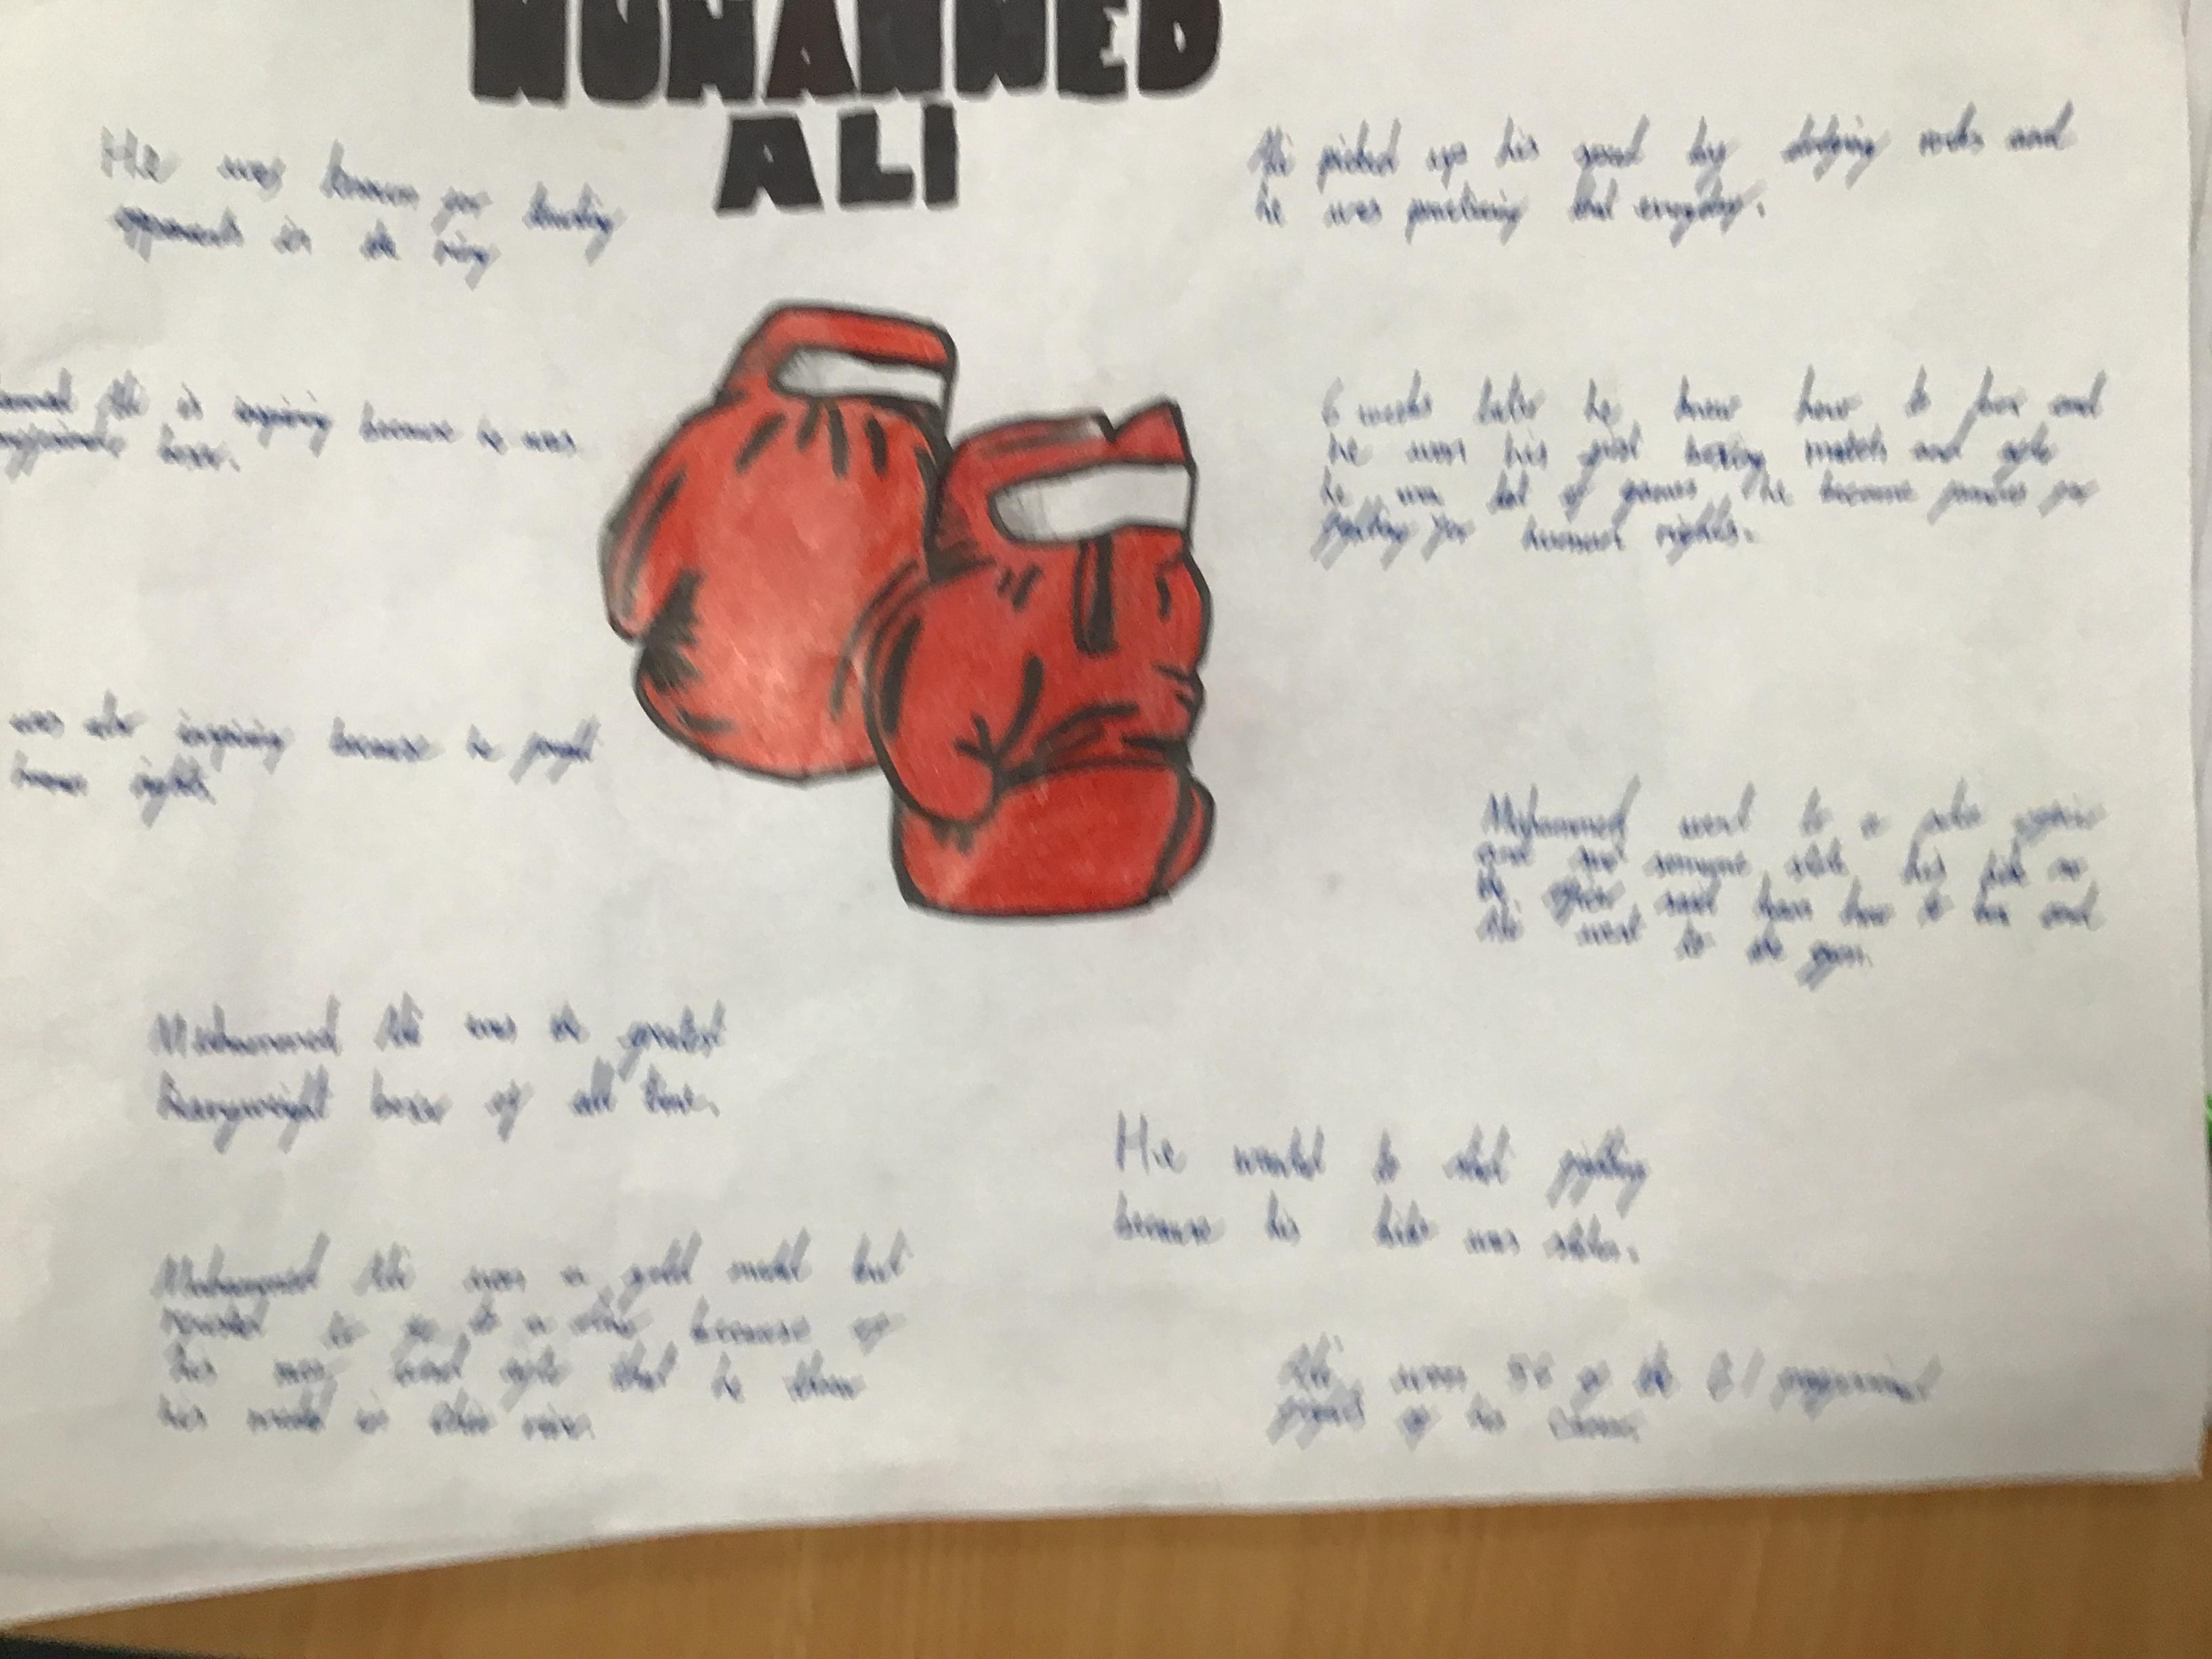 MUHAMMED
ALI
He was known for taunting
opponents in the ring
Ali is inspiring because he was
boxer.
was also inspiring because he
rights.
Muhammed Ali was the greatest
heavyweight boxer of all time.
Muhammed Ali won a gold medal but
to go to a because of
his race. that he threw
his medal in Ohio river.
Ali picked up his speed by dodging rocks and
he was practicing that everyday.
6 weeks later he knew how to box and
he won his first boxing match and after
he won lot of games he became famous for
fighting for human rights.
Muhammed went to a police officer
and said someone stole his bike so
the officer said learn how to box and
Ali went to the gym.
He wanted to start fighting
because his bike was stolen.
Ali won 56 of the 61 professional
fights of his career.